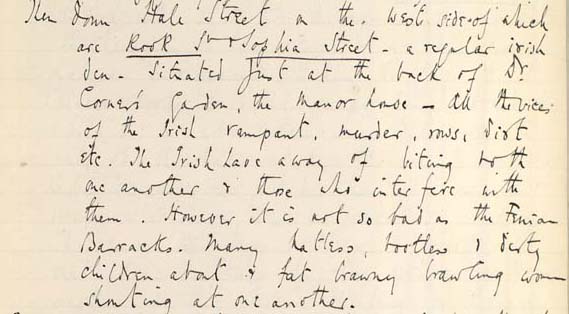 Then down Hale Street on the west side of which
are Rook St & Sophia Street - a regular irish
den - situated just at the back of Dr
Corner's Garden, the Manor house - all the vices
of the Irish rampant, murder, rows, dirt
etc. The Irish have a way of biting both
one another & those who interfere with
them. However it is not so bad as the Fenian
Barracks. Many hatless, bootless & dirty
children about & fat brawny brawling women
shouting at one another.